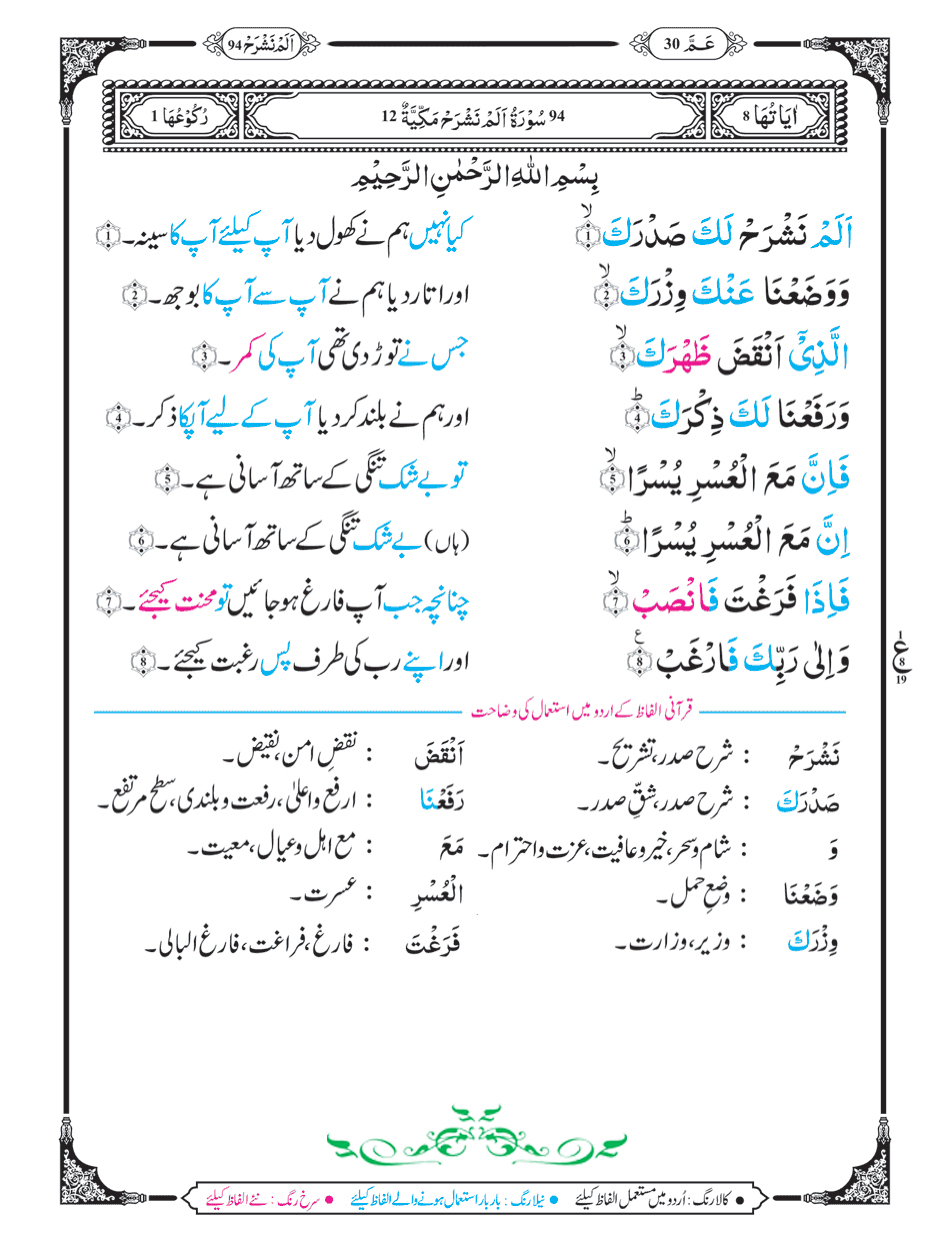 عَـمَّ 30 اَلَمْ نَشْرَحْ 94
اٰيَاتُهَا 8 94 سُوْرَةُ اَلَمْ نَشْرَحْ مَكِّيَّةٌ 12 رُكُوْعُهَا 1
بِسْمِ اللهِ الرَّحْمٰنِ الرَّحِيْمِ
اَلَمْ نَشْرَحْ لَكَ صَدْرَكَ ۙ 1 کیا نہیں ہم نے کھول دیا آپ کیلئے آپ کا سینہ۔ 1
وَوَضَعْنَا عَنْكَ وِزْرَكَ ۙ 2 اور اتار دیا ہم نے آپ سے آپ کا بوجھ۔ 2
الَّذِيْٓ اَنْقَضَ ظَهْرَكَ ۙ 3 جس نے توڑ دی تھی آپ کی کمر۔ 3
وَرَفَعْنَا لَكَ ذِكْرَكَ ؕ 4 اور ہم نے بلند کر دیا آپ کے لیے آپکا ذکر۔ 4
فَاِنَّ مَعَ الْعُسْرِ يُسْرًا ۙ 5 تو بے شک تنگی کے ساتھ آسانی ہے۔ 5
اِنَّ مَعَ الْعُسْرِ يُسْرًا ؕ 6 (ہاں) بے شک تنگی کے ساتھ آسانی ہے۔ 6
فَاِذَا فَرَغْتَ فَانْصَبْ ۙ 7 چنانچہ جب آپ فارغ ہو جائیں تو محنت کیجئے۔ 7
وَاِلٰى رَبِّكَ فَارْغَبْ ۧ 8 اور اپنے رب کی طرف پس رغبت کیجئے۔ 8
ع 8 19
قرآنی الفاظ کے اردو میں استعمال کی وضاحت
نَشْرَحْ : شرح صدر، تشریح۔ اَنْقَضَ : نقضِ امن، نقیض۔
صَدْرَكَ : شرح صدر، شقِّ صدر۔ رَفَعْنَا : ارفع واعلیٰ، رفعت و بلندی، سطح مرتفع۔
وَ : شام و سحر، خیر و عافیت، عزت و احترام۔ مَعَ : مع اہل و عیال، معیت۔
وَضَعْنَا : وضعِ حمل۔ الْعُسْرِ : عسرت۔
وِزْرَكَ : وزیر، وزارت۔ فَرَغْتَ : فارغ، فراغت، فارغ البالی۔
● کالا رنگ : اُردو میں مستعمل الفاظ کیلئے ● نیلا رنگ : بار بار استعمال ہونے والے الفاظ کیلئے ● سرخ رنگ : نئے الفاظ کیلئے